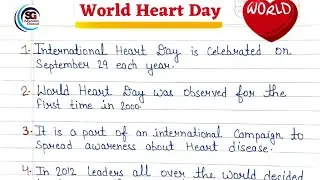 SG
World Heart Day
WORLD
1. International Heart Day is celebrated on
September 29 each year.
2. World Heart Day was observed for the
first time in 2000.
3. It is a part of an international Campaign to
Spread awareness about Heart disease.
4. In 2012 leaders all over the world decided